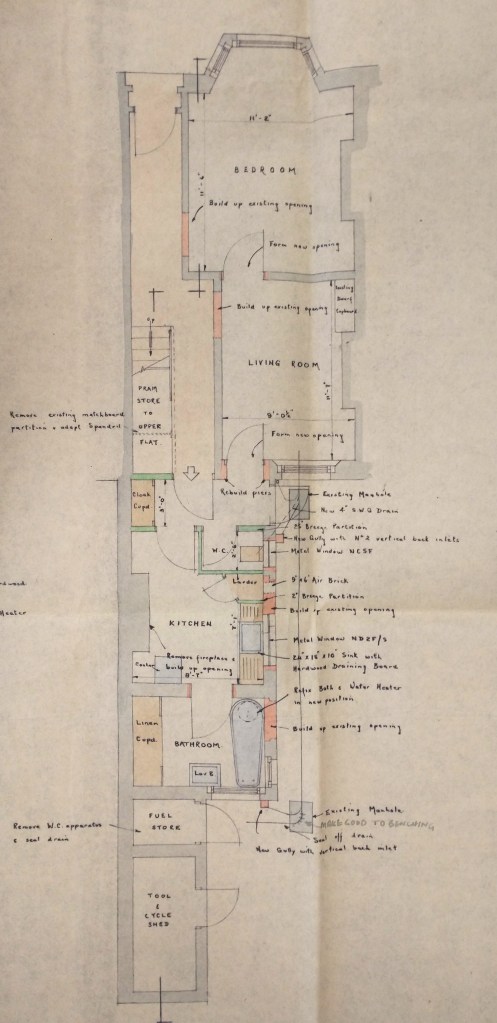 11'-2"
BEDROOM
11'-4"
Build up existing opening
Form new opening
Build up existing opening
Existing
Dwarf
Cupboard
LIVING ROOM
UP
PRAM
STORE
TO
UPPER
FLAT.
Remove existing matchboard
partition & adapt Spandril
9'-0½"
Form new opening
Rebuild piers
Existing Manhole
New 4" S.W.G Drain
Cloak
Cupd.
3'-0"
2" Breeze Partition
New Gully with No 2 vertical back inlets
W.C.
Metal Window NC5F
Larder
9"x6" Air Brick
2" Breeze Partition
Build up existing opening
KITCHEN
Metal Window ND2F/S
Remove fireplace &
build up opening
24"x18"x10" Sink with
Hardwood Draining Board
Cooker
8'-7"
Refix Bath & Water Heater
in new position.
Linen
Cupd.
BATHROOM
Build up existing opening
Lav B.
FUEL
STORE
Existing Manhole
MAKE GOOD TO BENCHING
Remove W.C. apparatus
& seal drain
Seal off drain.
New Gully with vertical back inlet
TOOL
&
CYCLE
SHED
hardwood
Heater